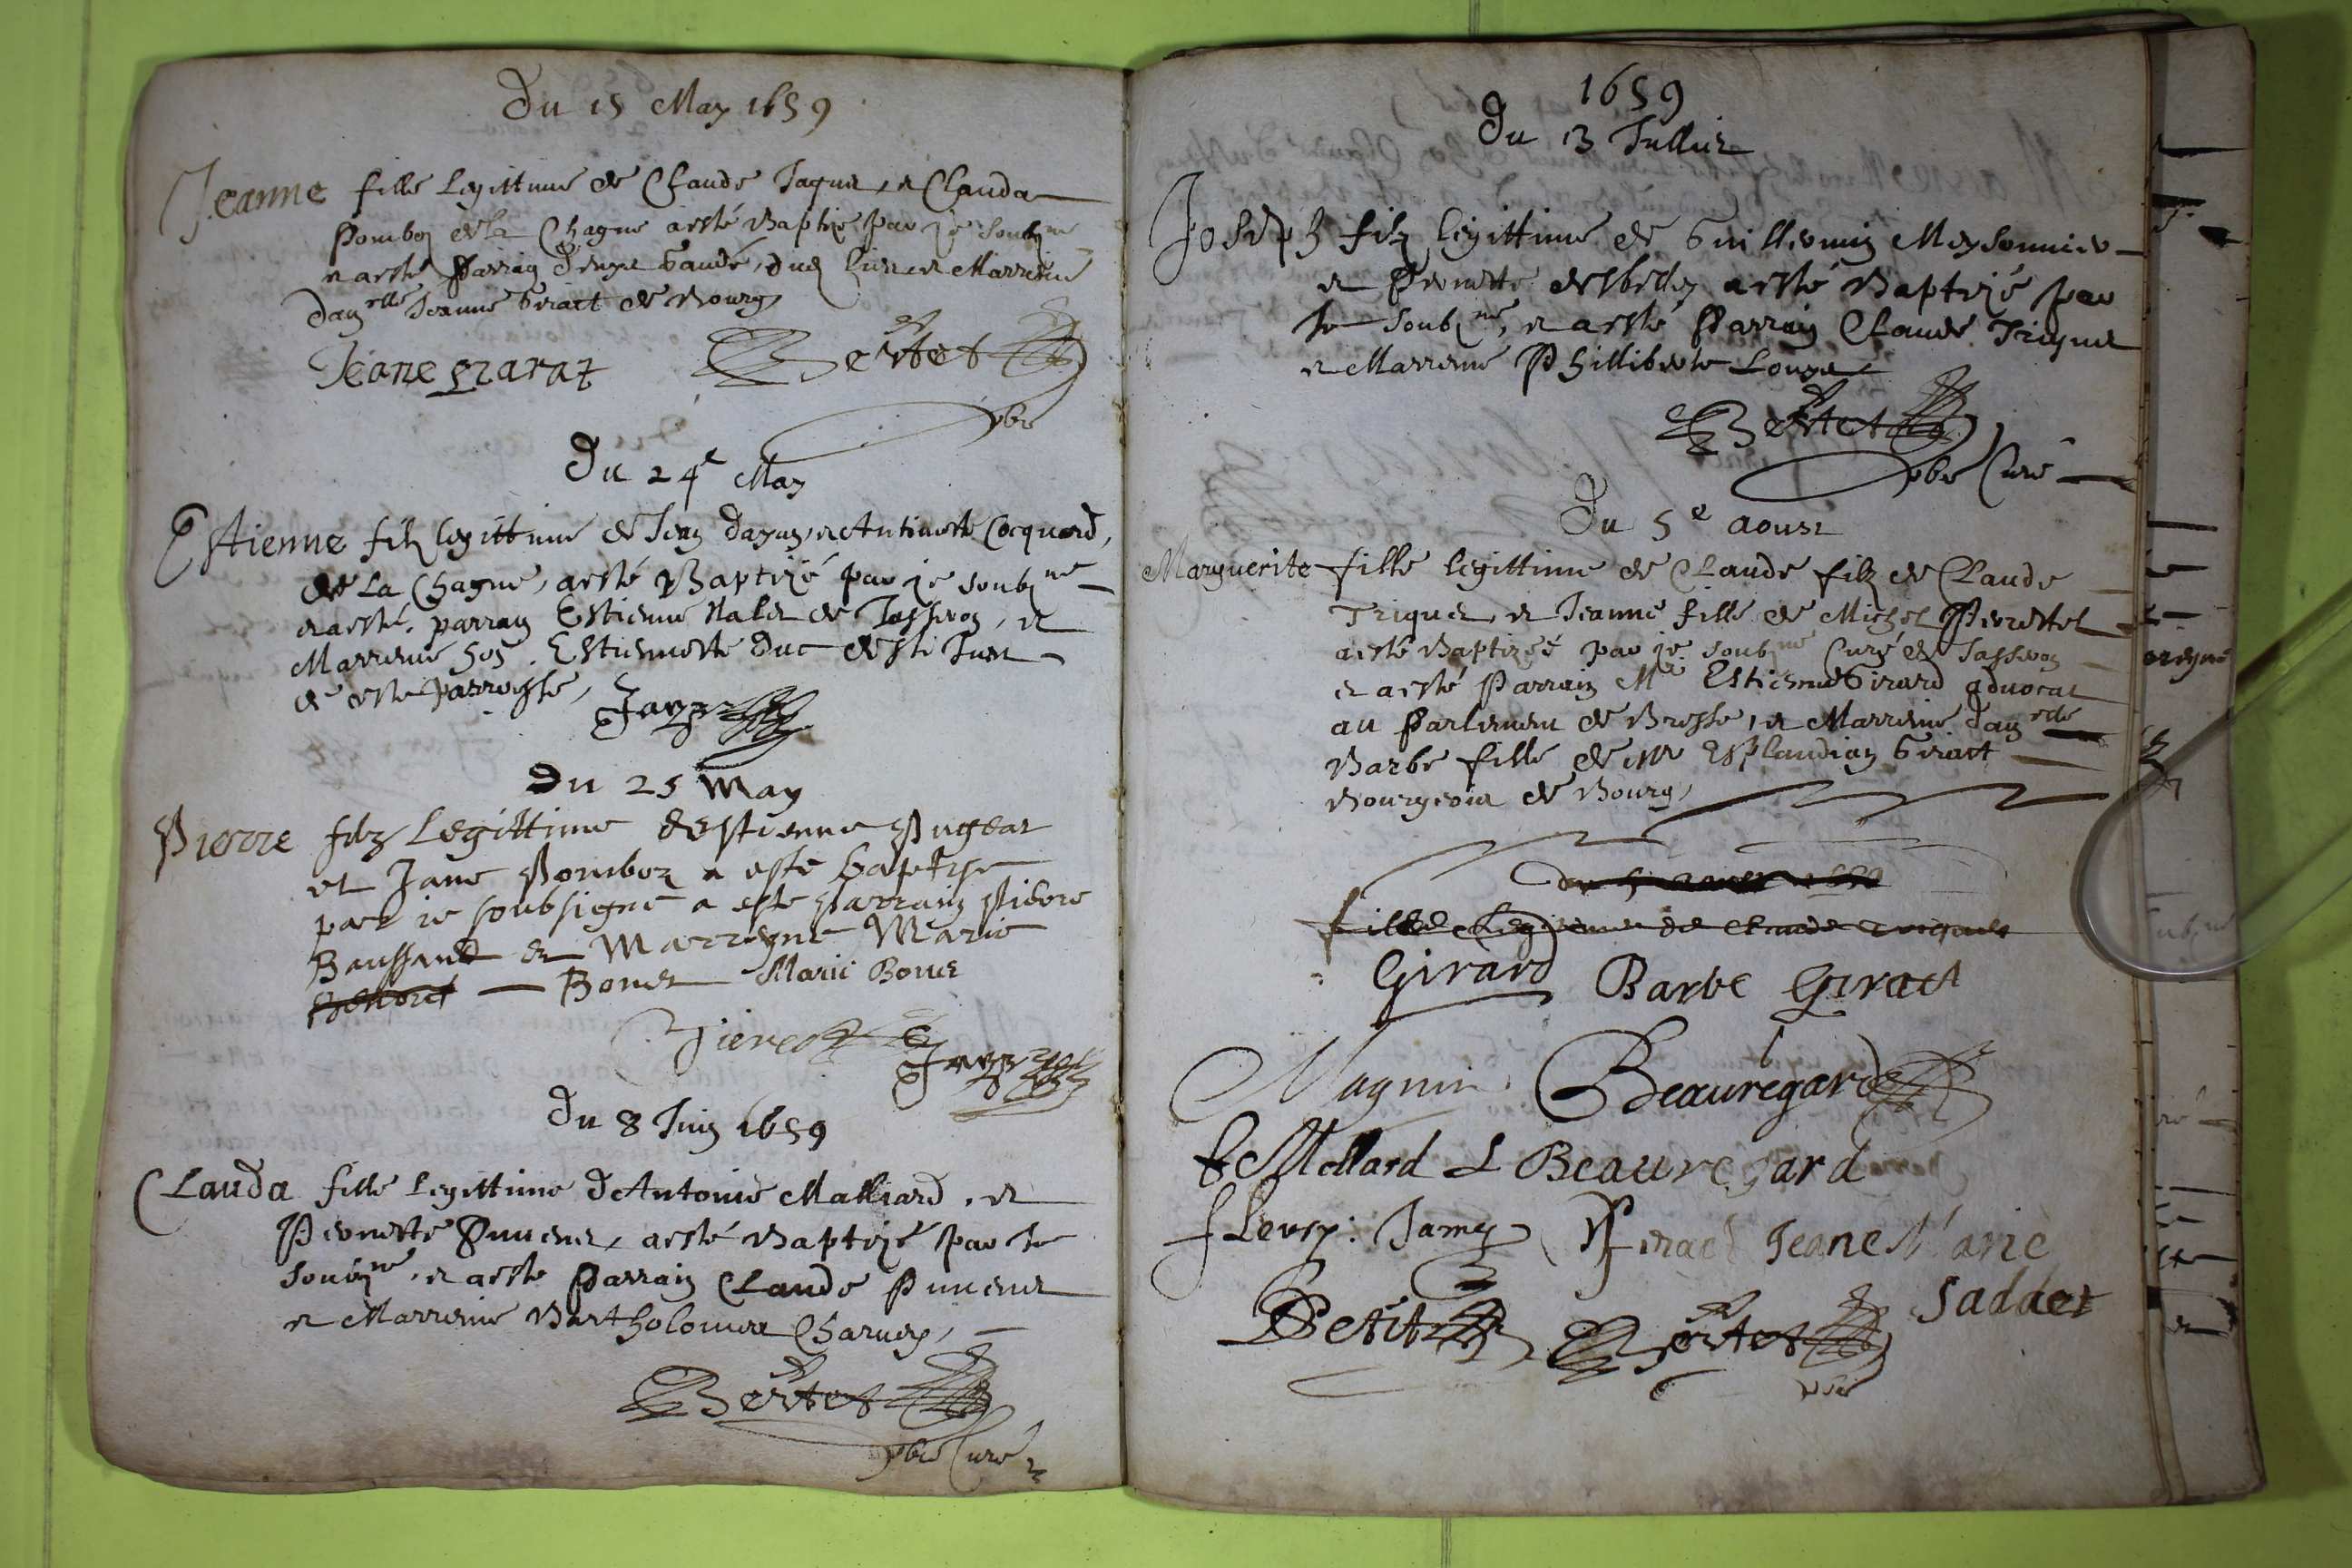 Du 15 May 1659
Jeanne fille legittime de Claude Jaquet, et Clauda
Pomboz de la Chagne a esté Baptizé par je soubz.ne
et a esté Parrain Denys Gaudé, dud lieu et Marrene
Dam.elle Jeanne Giract de Bourg
Jeane girarat Bertet
pbre
Du 24e May
Estienne filz legittime de Jean Dayan, et Antinette Cocquard,
de La Chagne, a esté Baptizé par je soubz.ne
et a esté parrain Estienne Nalet de Jasseron, et
Marrenne hon. Estiennette Duc
de ceste Parroisse,
Jayr
Du 25 May
Pierre filz Legittime d'Estienne Pugeat
et Jane Pomboz a esté baptise
par je soubsigné a este Parrain Pierre
Baussand et Marreyne Marie
Bonet Marie Bonet
Jayr
Du 8 Juin 1659
Clauda fille legittime d'Antoine Malliard, et
Pernette Puvenet, a esté Baptizé par je
soubz.ne, et a esté Parrain Claude Puvenet
et Marrenne Bartholomea Charvey,
Bertet
pbre Curé
1659
Du 13 Jullie
Joseph filz legittime de Guillermin Meysonnier
et Pernette a esté Baptizé par
je soubz.ne, et a esté Parrain Claude Triquet
et Marrenne Phillibete Louza
Bertet
pbre Curé
Du 5e aoust
Marguerite fille legittime de Claude filz de Claude
Triquet, et Jeanne fille de Michel Perretel
a esté Baptizée par je soubz.ne Curé de Jasseron
et a esté Parrain Me Estienne Girard advocat
au Parlement de Bresse, et Marrenne Dam.elle
Barbe fille de Me Esplandian Giract
Bourgeois de Bourg,
du 5e aoust 1659
fille Legitime de Claude Triquet
Girard Barbe Giract
Magnin Beauregard
C Mollard L Beauregard
fleury Jamez Giract Jeane Marie
Saddet
Petit Bertet
pbre